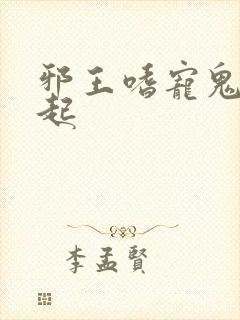 邪王嗜寵鬼
起
李孟賢